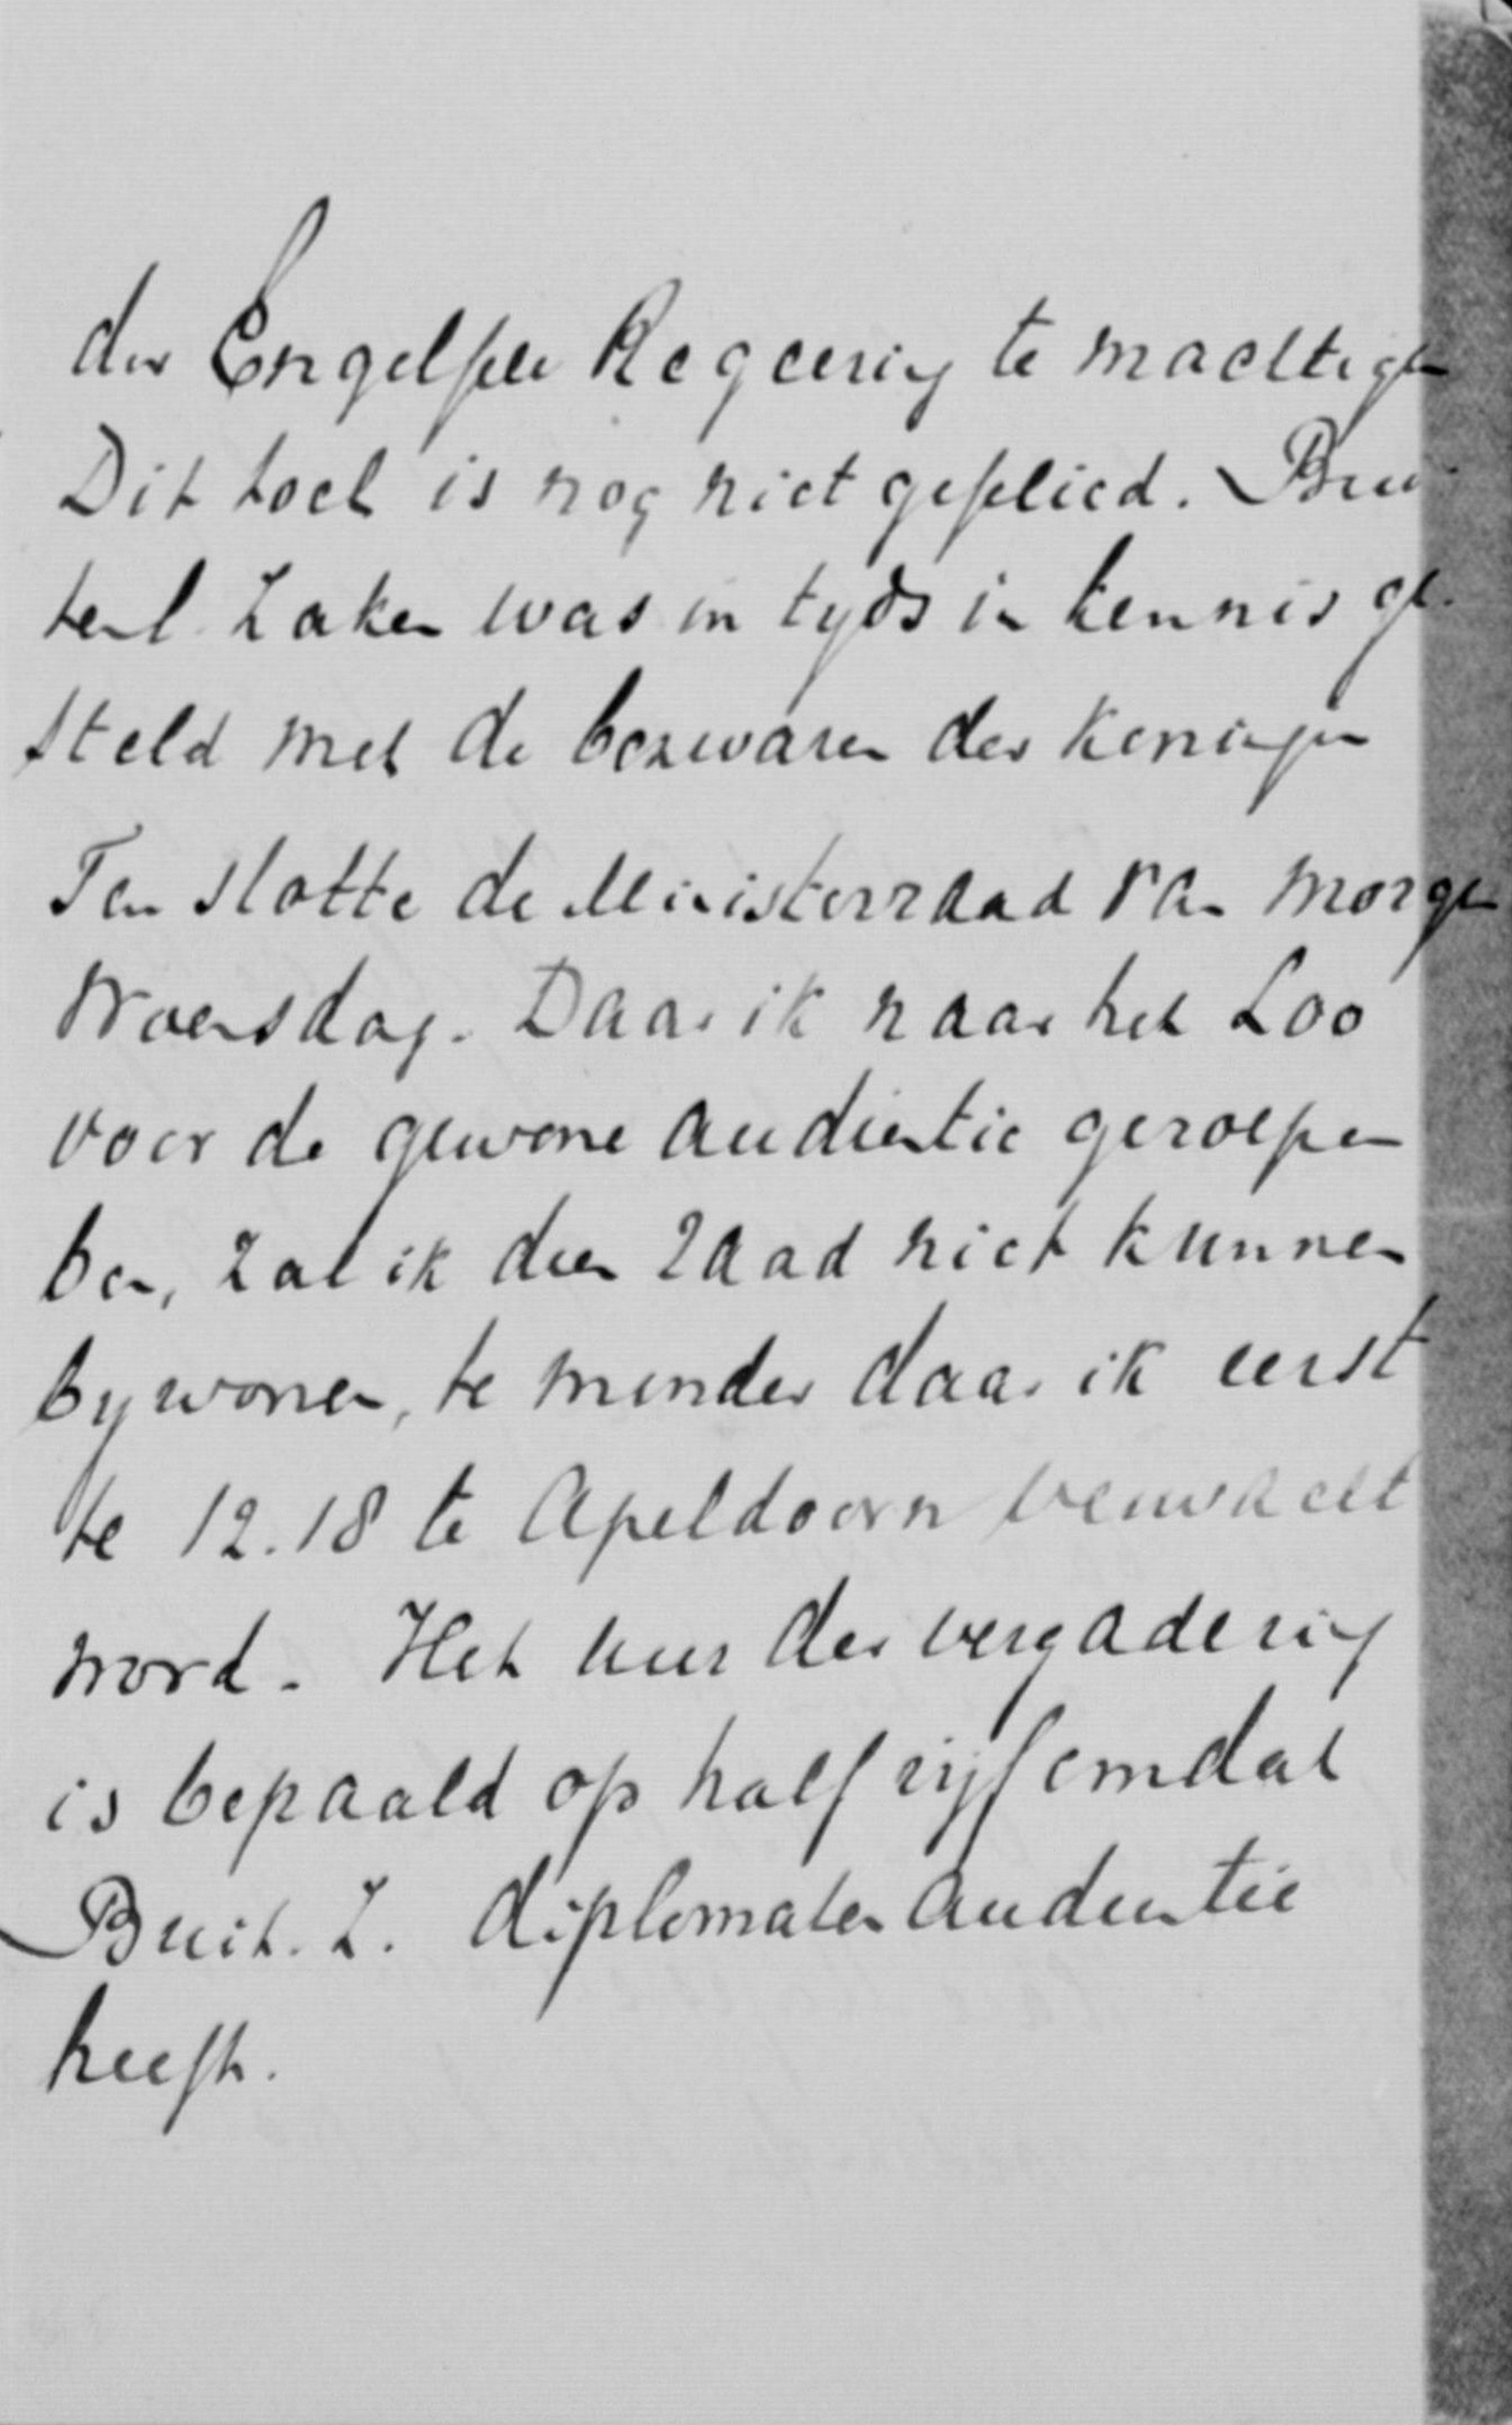 der Engelsche Regeering te machtigen
Dit toch is nog niet geschied. Bui-
tenl. Zaken was in tyds in kennis ge-
steld met de bezwaren der Koningin
Ten slotte de Ministerraad van morgen
Woensdag. Daar ik naar het Loo
voor de gewone audientie geroepen
ben, zal ik dien Raad niet kunnen
bywonen, te minder daar ik eerst
te 12.18 te Apeldoorn verwacht
word. Het uur der vergadering
is bepaald op half vijf omdat
Buit. Z. diplomaten audientie
heeft.